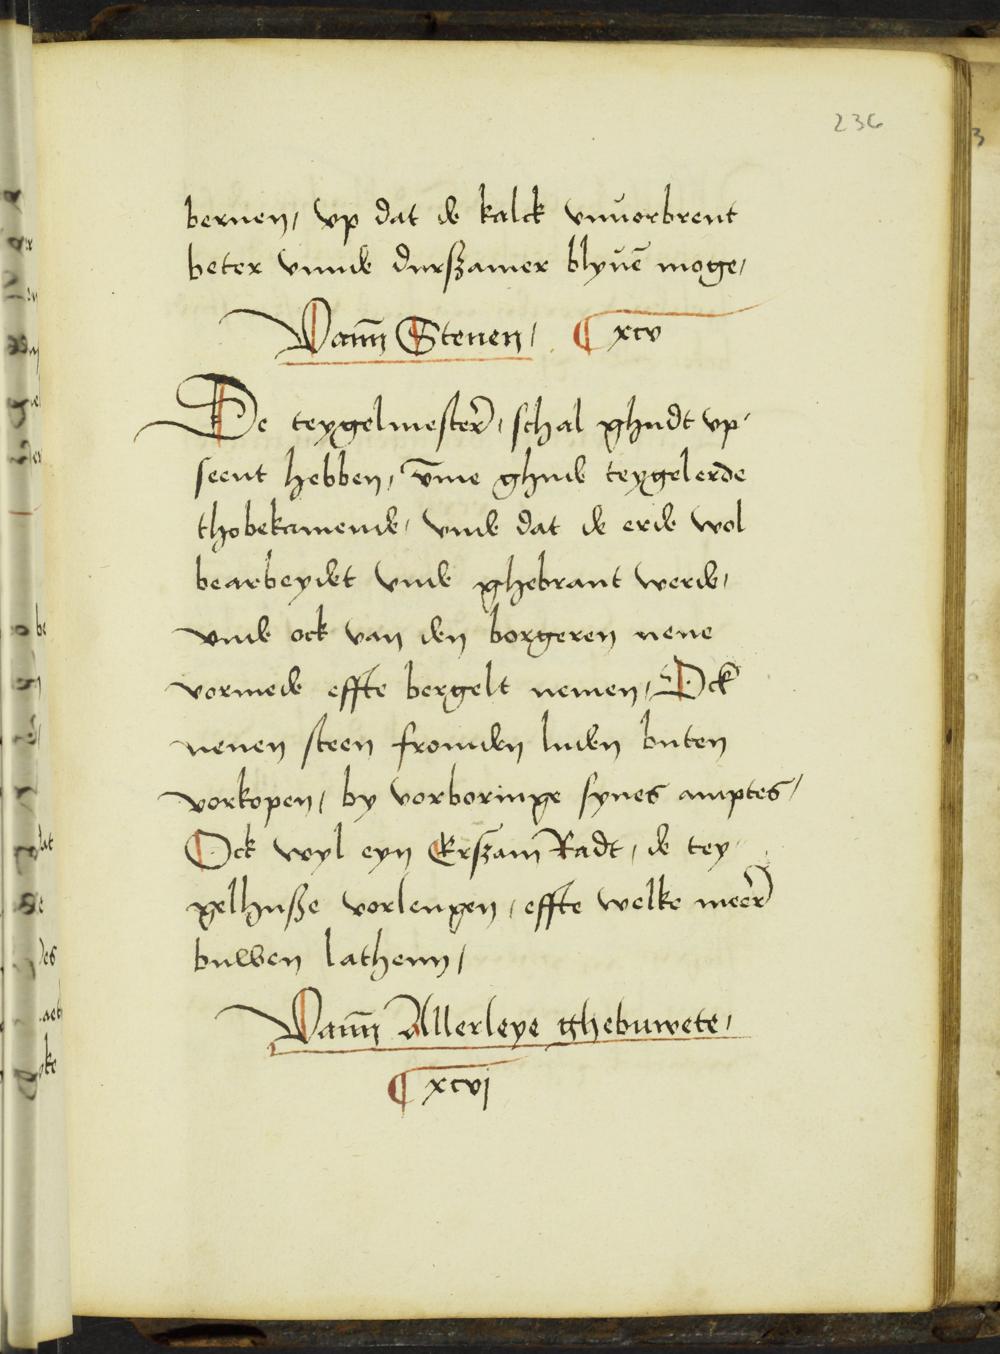 236
bernen, vp dat de kalck vnuorbrent
beter vnnde durßamer blyuē moge,
Vann̄ Stenen, ¶ xcv
De teygelmester, schal ghudt vp-
seent hebben, vm̄e ghude teygelerde
thobekamende, vnde dat de erde wol
bearbeydet vnde ghebrant werde,
vnde ock van den borgeren nene
vormede effte bergelt nemen, Ock
nenen steen fromden luden buten
vorkopen, by vorboringe synes amptes,
Ock wyl eyn Erßam Radt, de tey-
gelhuße vorlengen, effte welke meer
buwen lathenn,
Vann̄ Allerleye ghebuwete,
¶ xcvj